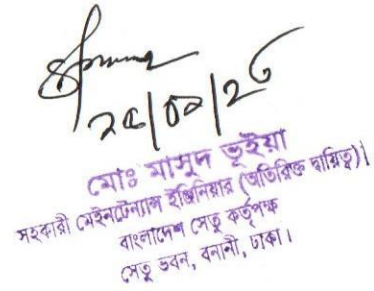 মোঃ মাসুদ ভূইয়া
সহকারী মেইনটেন্যান্স ইঞ্জিনিয়ার (অতিরিক্ত দায়িত্ব)।
বাংলাদেশ সেতু কর্তৃপক্ষ
সেতু ভবন, বনানী, ঢাকা।